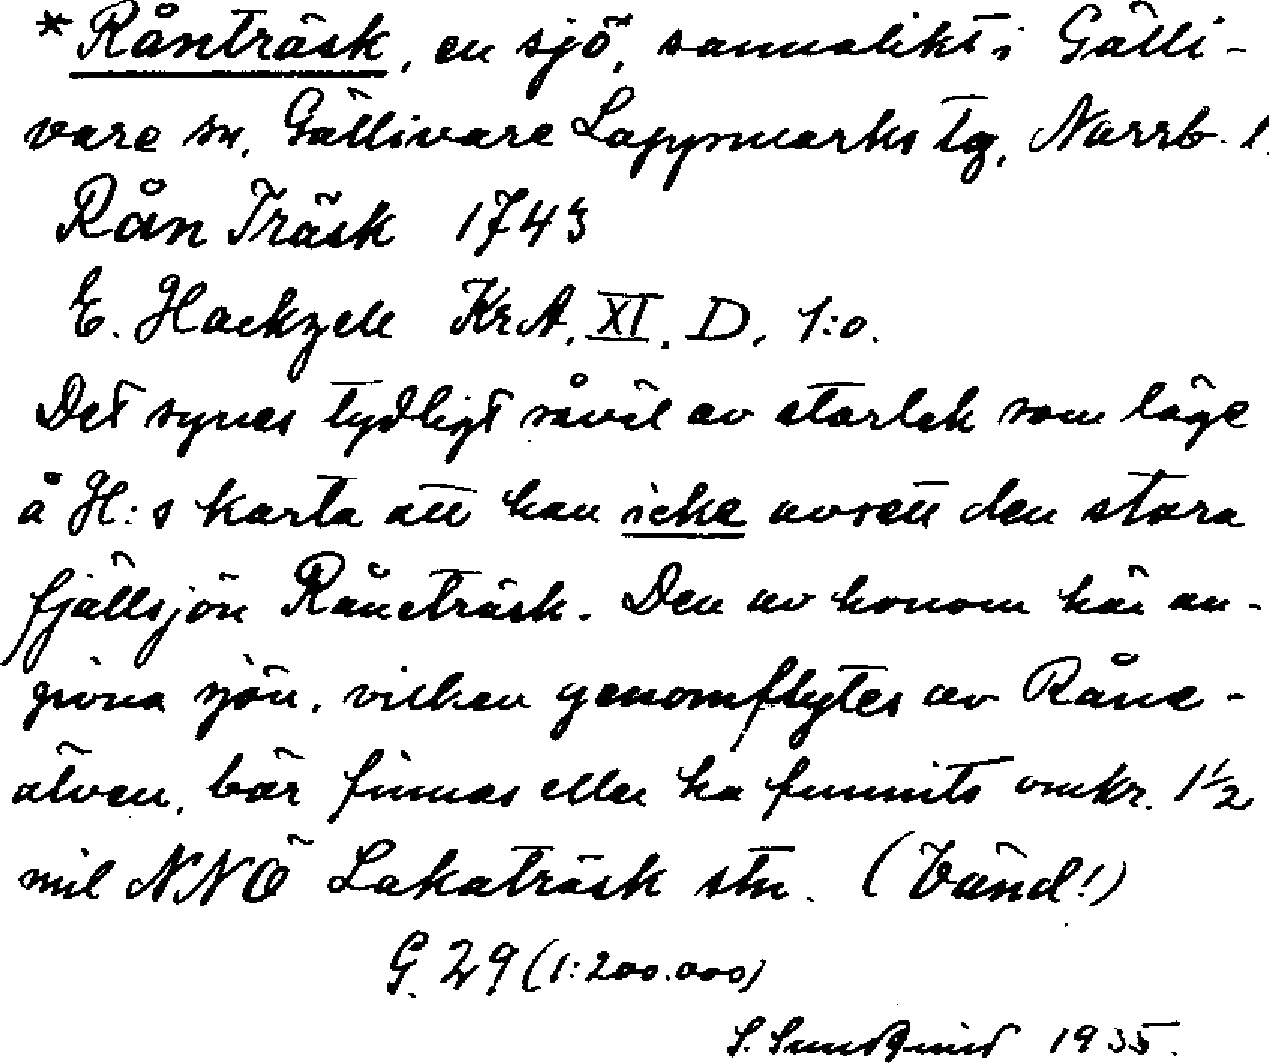 *Rånträsk, en sjö, sannolikt i Gälli-
vare sn, Gällivare Lappmarks tg, Norrb. l.
Rån Träsk 1743
E. Hackzell KrA, XI. D, 1:o.
Det synes tydligt såväl av storlek som läge
å H:s karta att han icke avsett den stora
fjällsjön Råneträsk. Den av honom här an-
givna sjön, vilken genomflytes av Råne-
älven, bör finnas eller ha funnits omkr. 1½
mil NNÖ Lakaträsk stn. (Vänd!)
G. 29 (1:200.000)
S. 1935.